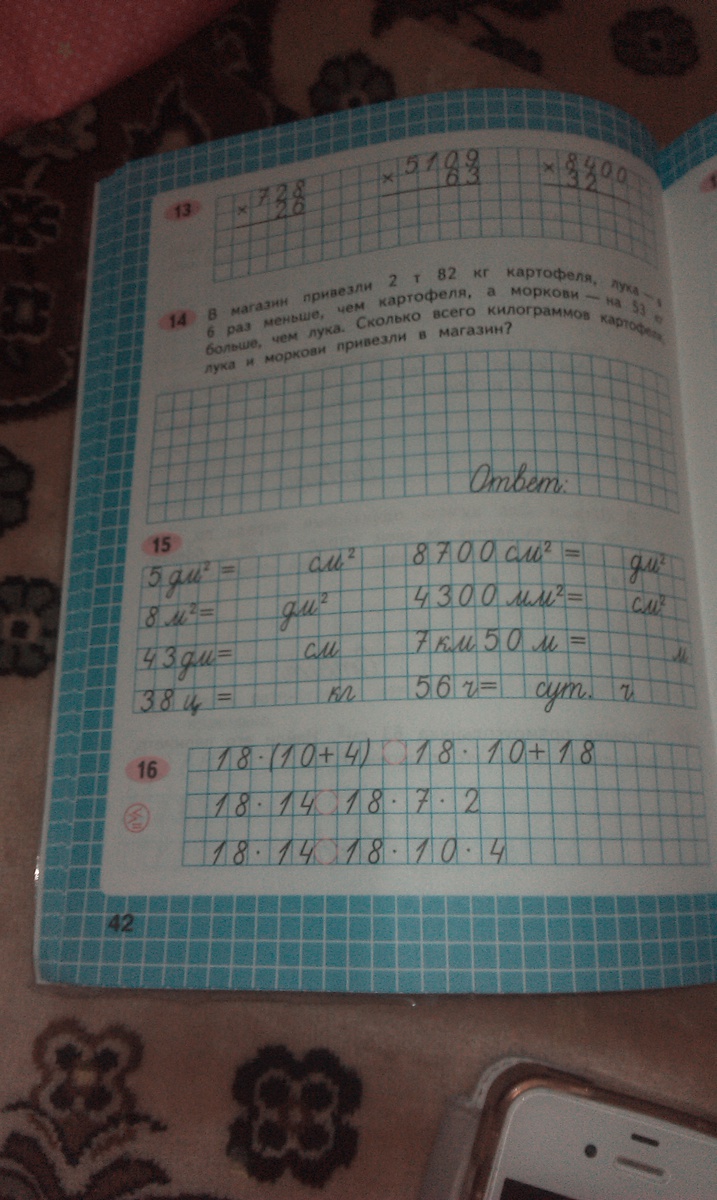 13
× 728
26
× 5109
63
× 8400
32
14
В магазин привезли 2 т 82 кг картофеля, лука — в
6 раз меньше, чем картофеля, а моркови — на 53 кг
больше, чем лука. Сколько всего килограммов картофеля,
лука и моркови привезли в магазин?
Ответ:
15
5 дм² = см² 8700 см² = дм²
8 м² = дм² 4300 мм² = см²
43 дм = см 7 км 50 м = м
38 ц = кг 56 ч = сут. ч
16
18 · (10 + 4) 18 · 10 + 18
18 · 14 18 · 7 · 2
18 · 14 18 · 10 · 4
42